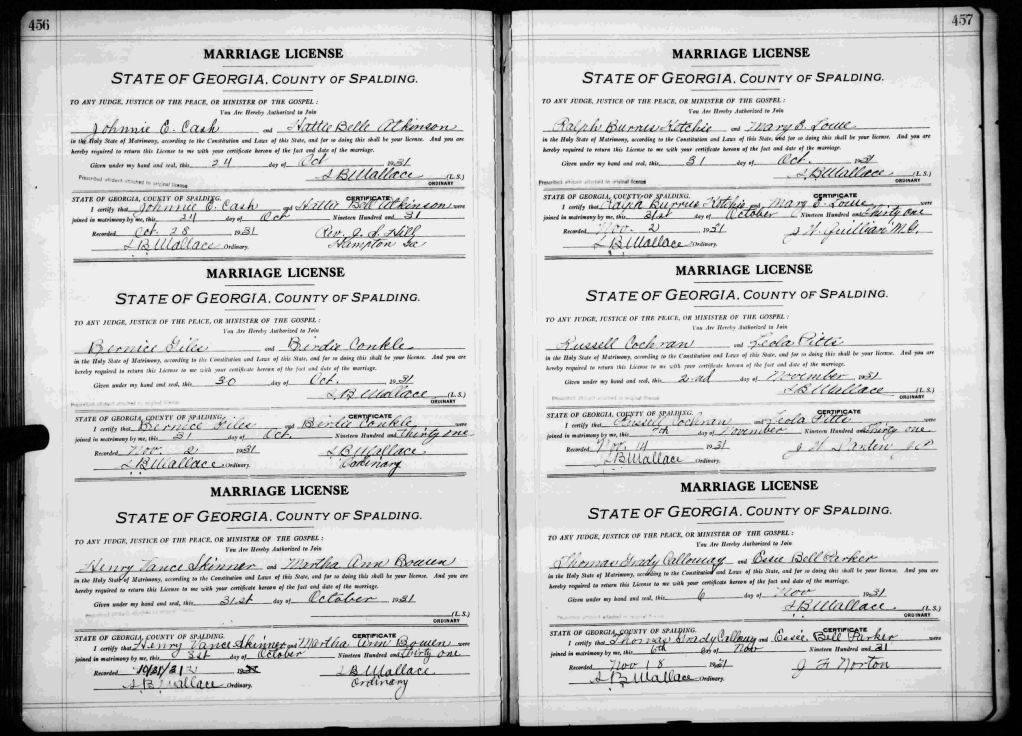 456
MARRIAGE LICENSE
STATE OF GEORGIA, COUNTY OF SPALDING.
TO ANY JUDGE, JUSTICE OF THE PEACE, OR MINISTER OF THE GOSPEL:
You Are Hereby Authorized to Join
Johnnie E. Cash and Hattie Belle Atkinson
in the Holy State of Matrimony, according to the Constitution and Laws of this State, and for so doing this shall be your license. And you are
hereby required to return this License to me with your certificate hereon of the fact and date of the marriage.
Given under my hand and seal, this 24 day of Oct 1931
LBWallace (L. S.)
Prescribed affidavit attached to original license ORDINARY
STATE OF GEORGIA, COUNTY OF SPALDING. CERTIFICATE
I certify that Johnnie E. Cash and Hattie Bell Atkinson were
joined in matrimony by me, this 24 day of Oct Nineteen Hundred and 31
Recorded Oct. 28 1931 Rev. J. S. Hill
LBWallace Ordinary. Hampton Ga
MARRIAGE LICENSE
STATE OF GEORGIA, COUNTY OF SPALDING.
TO ANY JUDGE, JUSTICE OF THE PEACE, OR MINISTER OF THE GOSPEL:
You Are Hereby Authorized to Join
Bernice Giles and Birdie Conkle
in the Holy State of Matrimony, according to the Constitution and Laws of this State, and for so doing this shall be your license. And you are
hereby required to return this License to me with your certificate hereon of the fact and date of the marriage.
Given under my hand and seal, this 30 day of Oct. 1931
LBWallace (L. S.)
Prescribed affidavit attached to original license ORDINARY
STATE OF GEORGIA, COUNTY OF SPALDING. CERTIFICATE
I certify that Bernice Giles and Birdie Conkle were
joined in matrimony by me, this 31 day of Oct Nineteen Hundred and thirty one
Recorded Nov. 2 1931 LBWallace
LBWallace Ordinary. Ordinary
MARRIAGE LICENSE
STATE OF GEORGIA, COUNTY OF SPALDING.
TO ANY JUDGE, JUSTICE OF THE PEACE, OR MINISTER OF THE GOSPEL:
You Are Hereby Authorized to Join
Henry Vance Skinner and Martha Ann Bowen
in the Holy State of Matrimony, according to the Constitution and Laws of this State, and for so doing this shall be your license. And you are
hereby required to return this License to me with your certificate hereon of the fact and date of the marriage.
Given under my hand and seal, this 31st day of October 1931
(L. S.)
ORDINARY
STATE OF GEORGIA, COUNTY OF SPALDING. CERTIFICATE
I certify that Henry Vance Skinner and Martha Ann Bowen were
joined in matrimony by me, this 31st day of October Nineteen Hundred and thirty one
Recorded 10/31/31 19 LBWallace
LBWallace Ordinary. Ordinary
457
MARRIAGE LICENSE
STATE OF GEORGIA, COUNTY OF SPALDING.
TO ANY JUDGE, JUSTICE OF THE PEACE, OR MINISTER OF THE GOSPEL:
You Are Hereby Authorized to Join
Ralph Burnis Kitchie and Mary E. Louie
in the Holy State of Matrimony, according to the Constitution and Laws of this State, and for so doing this shall be your license. And you are
hereby required to return this License to me with your certificate hereon of the fact and date of the marriage.
Given under my hand and seal, this 31 day of Oct. 1931
LBWallace (L. S.)
Prescribed affidavit attached to original license ORDINARY
STATE OF GEORGIA, COUNTY OF SPALDING. CERTIFICATE
I certify that Ralph Burnis Kitchie and Mary E. Louie were
joined in matrimony by me, this 31st day of October Nineteen Hundred and thirty one
Recorded Nov. 2 1931 J H Quillian M.G.
LBWallace Ordinary.
MARRIAGE LICENSE
STATE OF GEORGIA, COUNTY OF SPALDING.
TO ANY JUDGE, JUSTICE OF THE PEACE, OR MINISTER OF THE GOSPEL:
You Are Hereby Authorized to Join
Russell Cochran and Leola Pitts
in the Holy State of Matrimony, according to the Constitution and Laws of this State, and for so doing this shall be your license. And you are
hereby required to return this License to me with your certificate hereon of the fact and date of the marriage.
Given under my hand and seal, this 2nd day of November 1931
LBWallace (L. S.)
Prescribed affidavit attached to original license ORDINARY
STATE OF GEORGIA, COUNTY OF SPALDING. CERTIFICATE
I certify that Russell Cochran and Leola Pitts were
joined in matrimony by me, this 7th day of November Nineteen Hundred and thirty one
Recorded Nov 14 1931
LBWallace Ordinary.
MARRIAGE LICENSE
STATE OF GEORGIA, COUNTY OF SPALDING.
TO ANY JUDGE, JUSTICE OF THE PEACE, OR MINISTER OF THE GOSPEL:
You Are Hereby Authorized to Join
Thomas Grady Calloway and Essie Bell Parker
in the Holy State of Matrimony, according to the Constitution and Laws of this State, and for so doing this shall be your license. And you are
hereby required to return this License to me with your certificate hereon of the fact and date of the marriage.
Given under my hand and seal, this 6 day of Nov 1931
LBWallace (L. S.)
ORDINARY
STATE OF GEORGIA, COUNTY OF SPALDING. CERTIFICATE
I certify that Thomas Grady Calloway and Essie Bell Parker were
joined in matrimony by me, this 6th day of Nov Nineteen Hundred and 31
Recorded Nov 18 1931 J F Norton
LBWallace Ordinary.